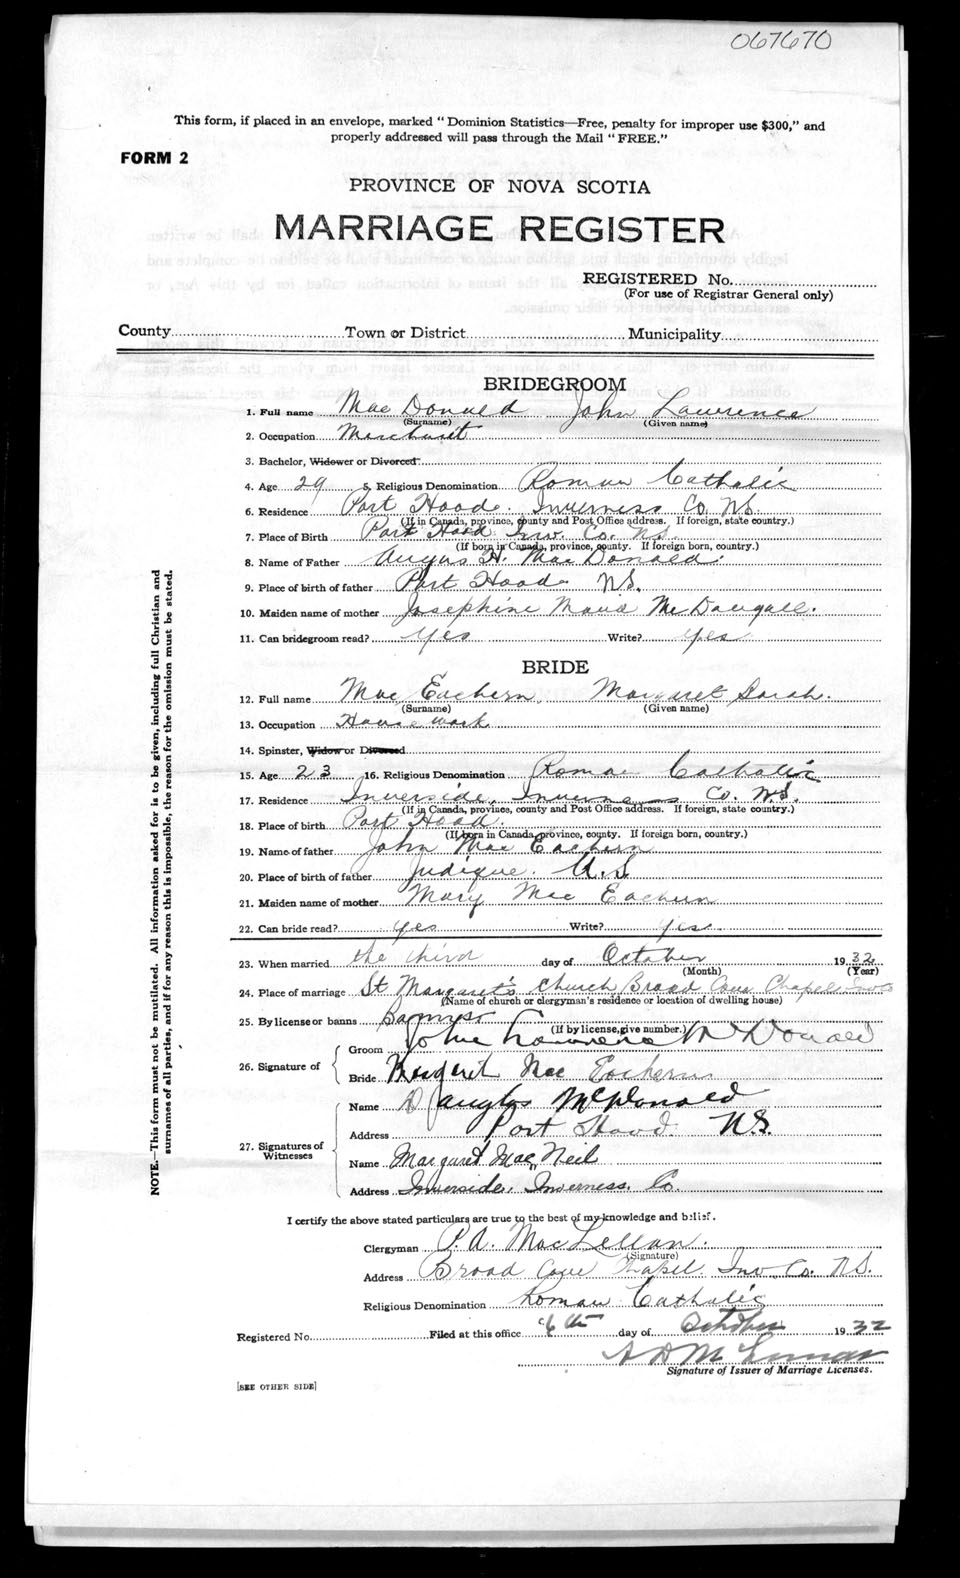 067670
This form, if placed in an envelope, marked "Dominion Statistics—Free, penalty for improper use $300," and
properly addressed will pass through the Mail "FREE."
FORM 2
PROVINCE OF NOVA SCOTIA
MARRIAGE REGISTER
REGISTERED No.
(For use of Registrar General only)
County Town or District Municipality
BRIDEGROOM
1. Full name Mac Donald John Lawrence
(Surname) (Given name)
2. Occupation Merchant
3. Bachelor, Widower or Divorced
4. Age 29 5. Religious Denomination Roman Catholic
6. Residence Port Hood. Inverness Co. N.S.
(If in Canada, province, county and Post Office address. If foreign, state country.)
7. Place of Birth Port Hood Inv. Co. N.S.
(If born in Canada, province, county. If foreign born, country.)
8. Name of Father Angus H. MacDonald.
9. Place of birth of father Port Hood N.S.
10. Maiden name of mother Josephine Maud McDougall.
11. Can bridegroom read? yes Write? yes
BRIDE
12. Full name Mac Eachern, Margaret Sarah.
(Surname) (Given name)
13. Occupation House work
14. Spinster, Widow or Divorced
15. Age 23 16. Religious Denomination Roman Catholic
17. Residence Inverside, Inverness Co. N.S.
(If in Canada, province, county and Post Office address. If foreign, state country.)
18. Place of birth Port Hood.
(If born in Canada, province, county. If foreign born, country.)
19. Name of father John Mac Eachern
20. Place of birth of father Judique. N.S.
21. Maiden name of mother Mary Mac Eachern
22. Can bride read? yes Write? yes.
23. When married the third day of October 1932
(Month) (Year)
24. Place of marriage St Margaret's Church Broad Cove Chapel
(Name of church or clergyman's residence or location of dwelling house)
25. By license or banns Banns
(If by license, give number.)
26. Signature of
Groom John Lawrence McDonald
Bride Margaret Mac Eachern
27. Signatures of Witnesses
Name Douglas McDonald
Address Port Hood N.S.
Name Margaret Mac Neil
Address Inverside, Inverness. Co.
I certify the above stated particulars are true to the best of my knowledge and belief.
Clergyman P. A. MacLellan.
(Signature)
Address Broad Cove Chapel Inv. Co. N.S.
Religious Denomination Roman Catholic
Registered No. Filed at this office 6th day of October 1932
Signature of Issuer of Marriage Licenses.
[SEE OTHER SIDE]
NOTE.—This form must not be mutilated. All information asked for is to be given, including full Christian and
surnames of all parties, and if for any reason this is impossible, the reason for the omission must be stated.